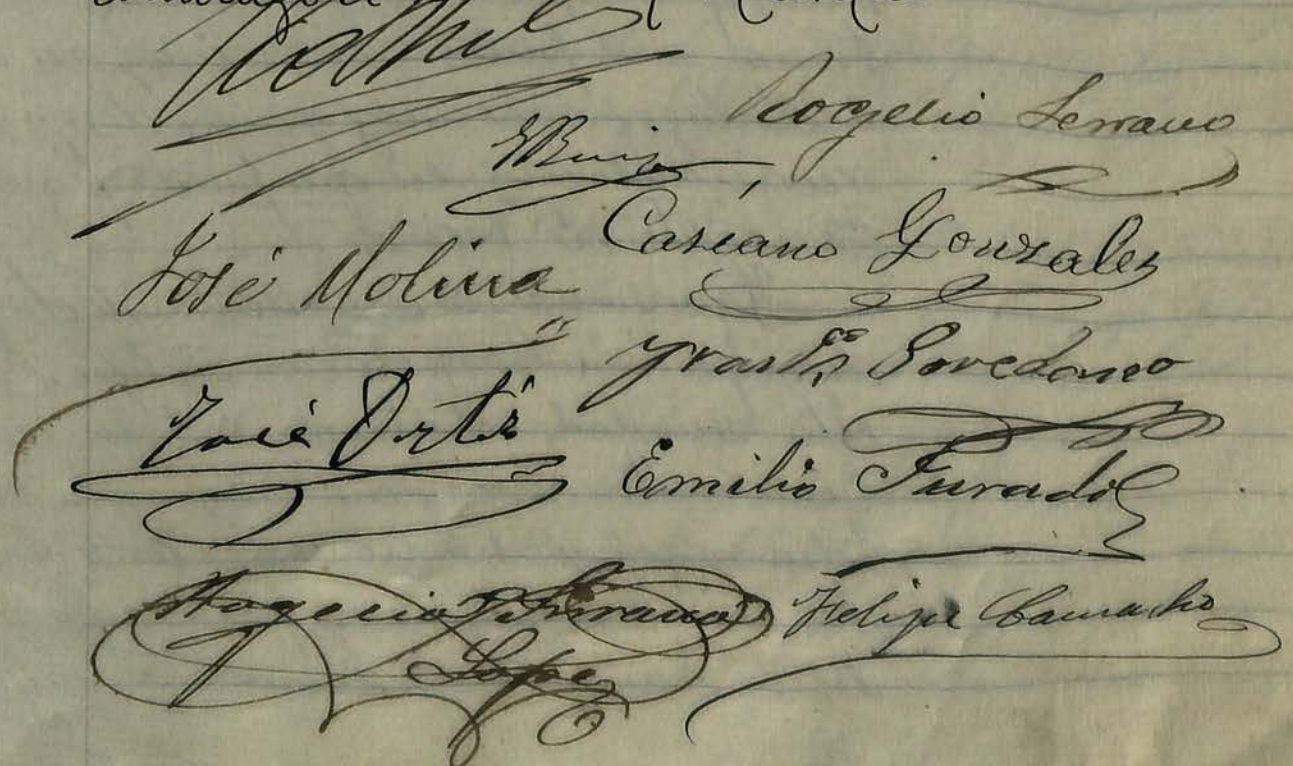 Rogelio Serrano
E Ruiz
Casiano Gonzales
José Molina
Povedano
José Ortiz
Emilio Jurado
Rogelio Serrano
Lopez
Felipe Camacho